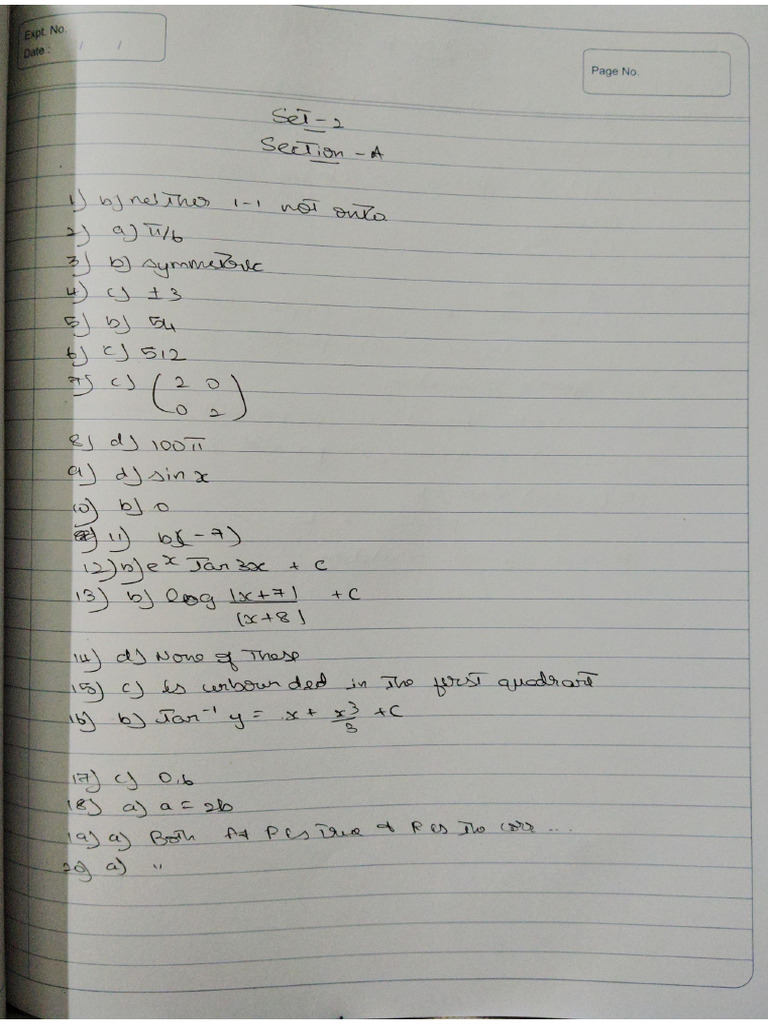 Expt. No.
Date : / /
Page No.
Set-2
Section - A
1) b) neither 1-1 not onto
2) a) π/6
3) b) symmetric
4) c) ± 3
5) b) 54
6) c) 512
7) c) (2 0
0 2)
8) d) 100π
9) d) sin x
10) b) 0
11) b) (-7)
12) b) e^x Tan 3x + C
13) b) log |x+7| + C
|x+8|
14) d) None of These
15) c) is unbounded in the first quadrant
16) b) Tan⁻¹ y = x + x³/3 + C
17) c) 0.6
18) a) a = 2b
19) a) Both A & R is true & R is the corr ...
20) a) "